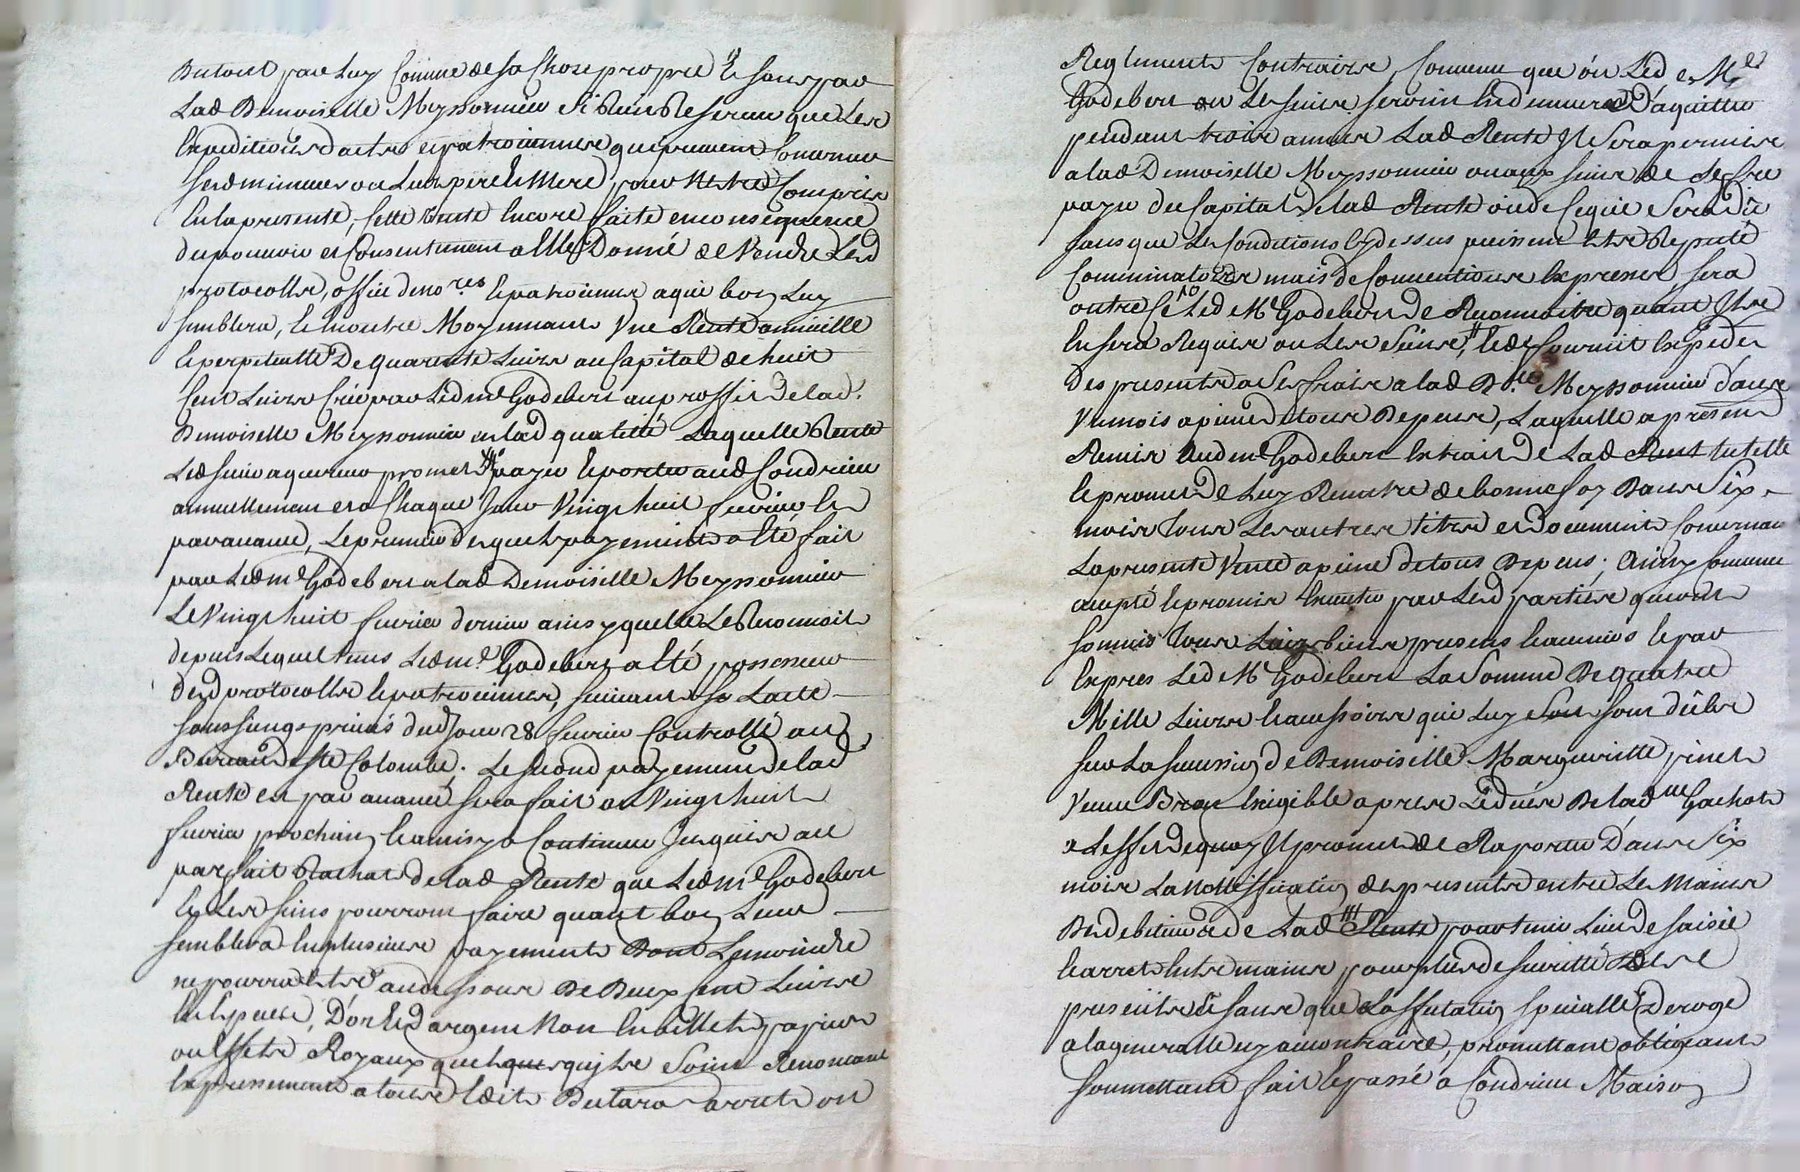 du tout par luy Comme de sa Chose propre Et sans par
lad Demoiselle Meyssonnier Si Rien Reserver que les
Expeditions dactes et patrimoniere qui peuvent Concerner
ses deniniers ou Leurs pere Et Mere, pour N'etre Compris
En la presente, Cette vente Encore faite en consequence
du pouvoir et Consentement a Elle Donné de Vendre Lesd
protocolles, office de nores Et patrociner a qui bon Luy
semblera, Et en outre Moyennant Une Rente annuelle
Et perpetuelle De quarante Livres au Capital de huit
Cent Livres Créé par Led me Godebert au proffit de lad.
Demoiselle Meyssonnier en lad qualité Laquelle Rente
Led sieur aquereur promet payer Et porter aud Condrieu
annuellement et a Chaque Jour Vingt huit fevrier Et
par avance, Le premier desquels payements a Eté fait
par Led me Godebert a lad Demoiselle Meyssonnier
Le Vingt huit fevrier dernier ainsy quelle Le Reconnoit
depuis Lequel tems Led me Godebert a Eté possesseur
desd protocolles Et patrociner, suivant Lacte
sous seings privés dud Jour 28 fevrier Controllé au
Bureau de Ste Colombe. Le second payement de lad
Rente et par avance sera fait au Vingt huit
fevrier prochain Et ainsy a Continuer Jusques au
parfait Rachat de lad Rente que Led me Godebert
Et Les siens pourront faire quant bon Leur
semblera En plusieurs payements Dont Le moindre
ne pourra Etre au dessous De Deux Cent Livres
En Especes, D'or Et d'argent Non En billets papiers
ou Effets Royaux quelques quils Soint Renoncant
Expressement a tous Edits Declaraõns arrets ou
Reglements Contraires, Convenu que ou Led Me
Godebert ou Les siens seroint En demeure D'aquitter
pendant trois années Lad Rente Il Sera permis
a lad Demoiselle Meyssonnier ou aux siens de se fre
payer du Capital de lad Rente ou de Ce qui Sera Dû
sans que Les Conditions Cy dessus puissent Etre Reputé
Comminatoire mais de Conventions Expresses, sera
outre Ce Led Me Godebert de Reconnoitre quant Il
En sera Requis ou Les Siens, Et de fournir Expedõn
des presentes a Ses frais a lad Dlle Meyssonnier dans
Un mois a peine de tous Depens, Laquelle a present
Remis aud me Godebert Extrait De Lad
Et promet de Luy Remettre de bonne foy Dans Six
mois tous Les autres titres et documents Concernant
La presente Vente a peine de tous Depens. Ainsy Convenu
accepté Et promis Executer par Lesd parties qui ont
soumis tous Leurs biens presens Et avenirs Et par
Expres Led Me Godebert La Somme De quatre
Mille Livres Et accessoires qui Luy Sont dües
sur La succession de Demoiselle Margueritte pinet
Veuve Exigible apres Le déces De lad me Gachot
a Leffet de quoy Il promet de Raporter Dans Six
mois La Nottiffication des presentes entre Les Mains
Des debiteurs de Lad pour tenir Lieu de saisie
Et arrets Entre mains pour plus de seuretté Des
presentes Et sans que Laffectation Specialle Deroge
a la generalle ny au contraire, promettant obligeant
soumettant fait Et passé a Condrieu Maison